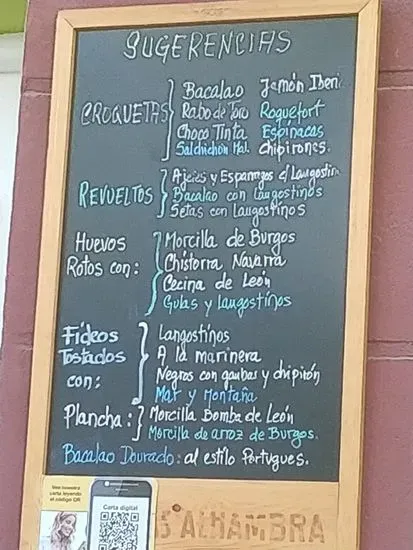 SUGERENCIAS
CROQUETAS
Bacalao Jamón Iberi
Rabo de Toro Roquefort
Choco Tinta Espinacas
Salchichón Mal. Chipirones.
REVUELTOS
Ajetes y Esparragos c/ Langostin
Bacalao con langostinos
Setas con langostinos
Huevos Rotos con:
Morcilla de Burgos
Chistorra Navarra
Cecina de León
Gulas y langostinos
Fideos Tostados con:
Langostinos
A la marinera
Negros con gambas y chipirón
Mar y Montaña
Plancha:
Morcilla Bomba de León
Morcilla de arroz de Burgos.
Bacalao Dourado: al estilo Portugues.
Vea nuestra
carta leyendo
el código QR
Carta digital
ALHAMBRA